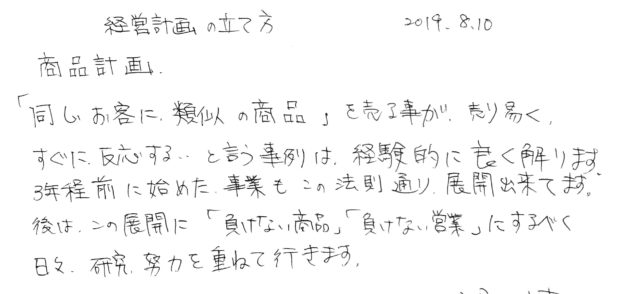 経営計画の立て方 2019.8.10
商品計画.
「同じお客に、類似の商品」を売る事が、売り易く、
すぐに、反応する‥と言う事例は、経験的に良く解ります
3年程前に始めた、事業もこの法則通り、展開出来てます。
後は、この展開に「負けない商品」「負けない営業」にするべく
日々、研究、努力を重ねて行きます。